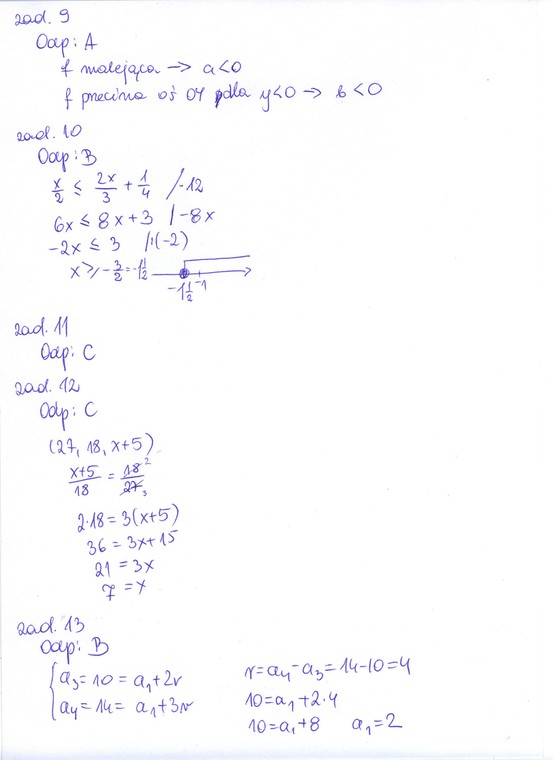 zad. 9
Odp: A
f malejąca → a<0
f przecina oś OY dla y<0 → b<0
zad. 10
Odp: B
x/2 ≤ 2x/3 + 1/4 /·12
6x ≤ 8x+3 /-8x
-2x ≤ 3 /:(-2)
x ≥ -3/2 = -1 1/2
-1 1/2 -1
zad. 11
Odp: C
zad. 12
Odp: C
(27, 18, x+5)
x+5/18 = 18 2/27 3
2·18 = 3(x+5)
36 = 3x+15
21 = 3x
7 = x
zad. 13
Odp: B
a₃ = 10 = a₁+2r
a₄ = 14 = a₁+3r
r = a₄-a₃ = 14-10 = 4
10 = a₁+2·4
10 = a₁+8 a₁ = 2